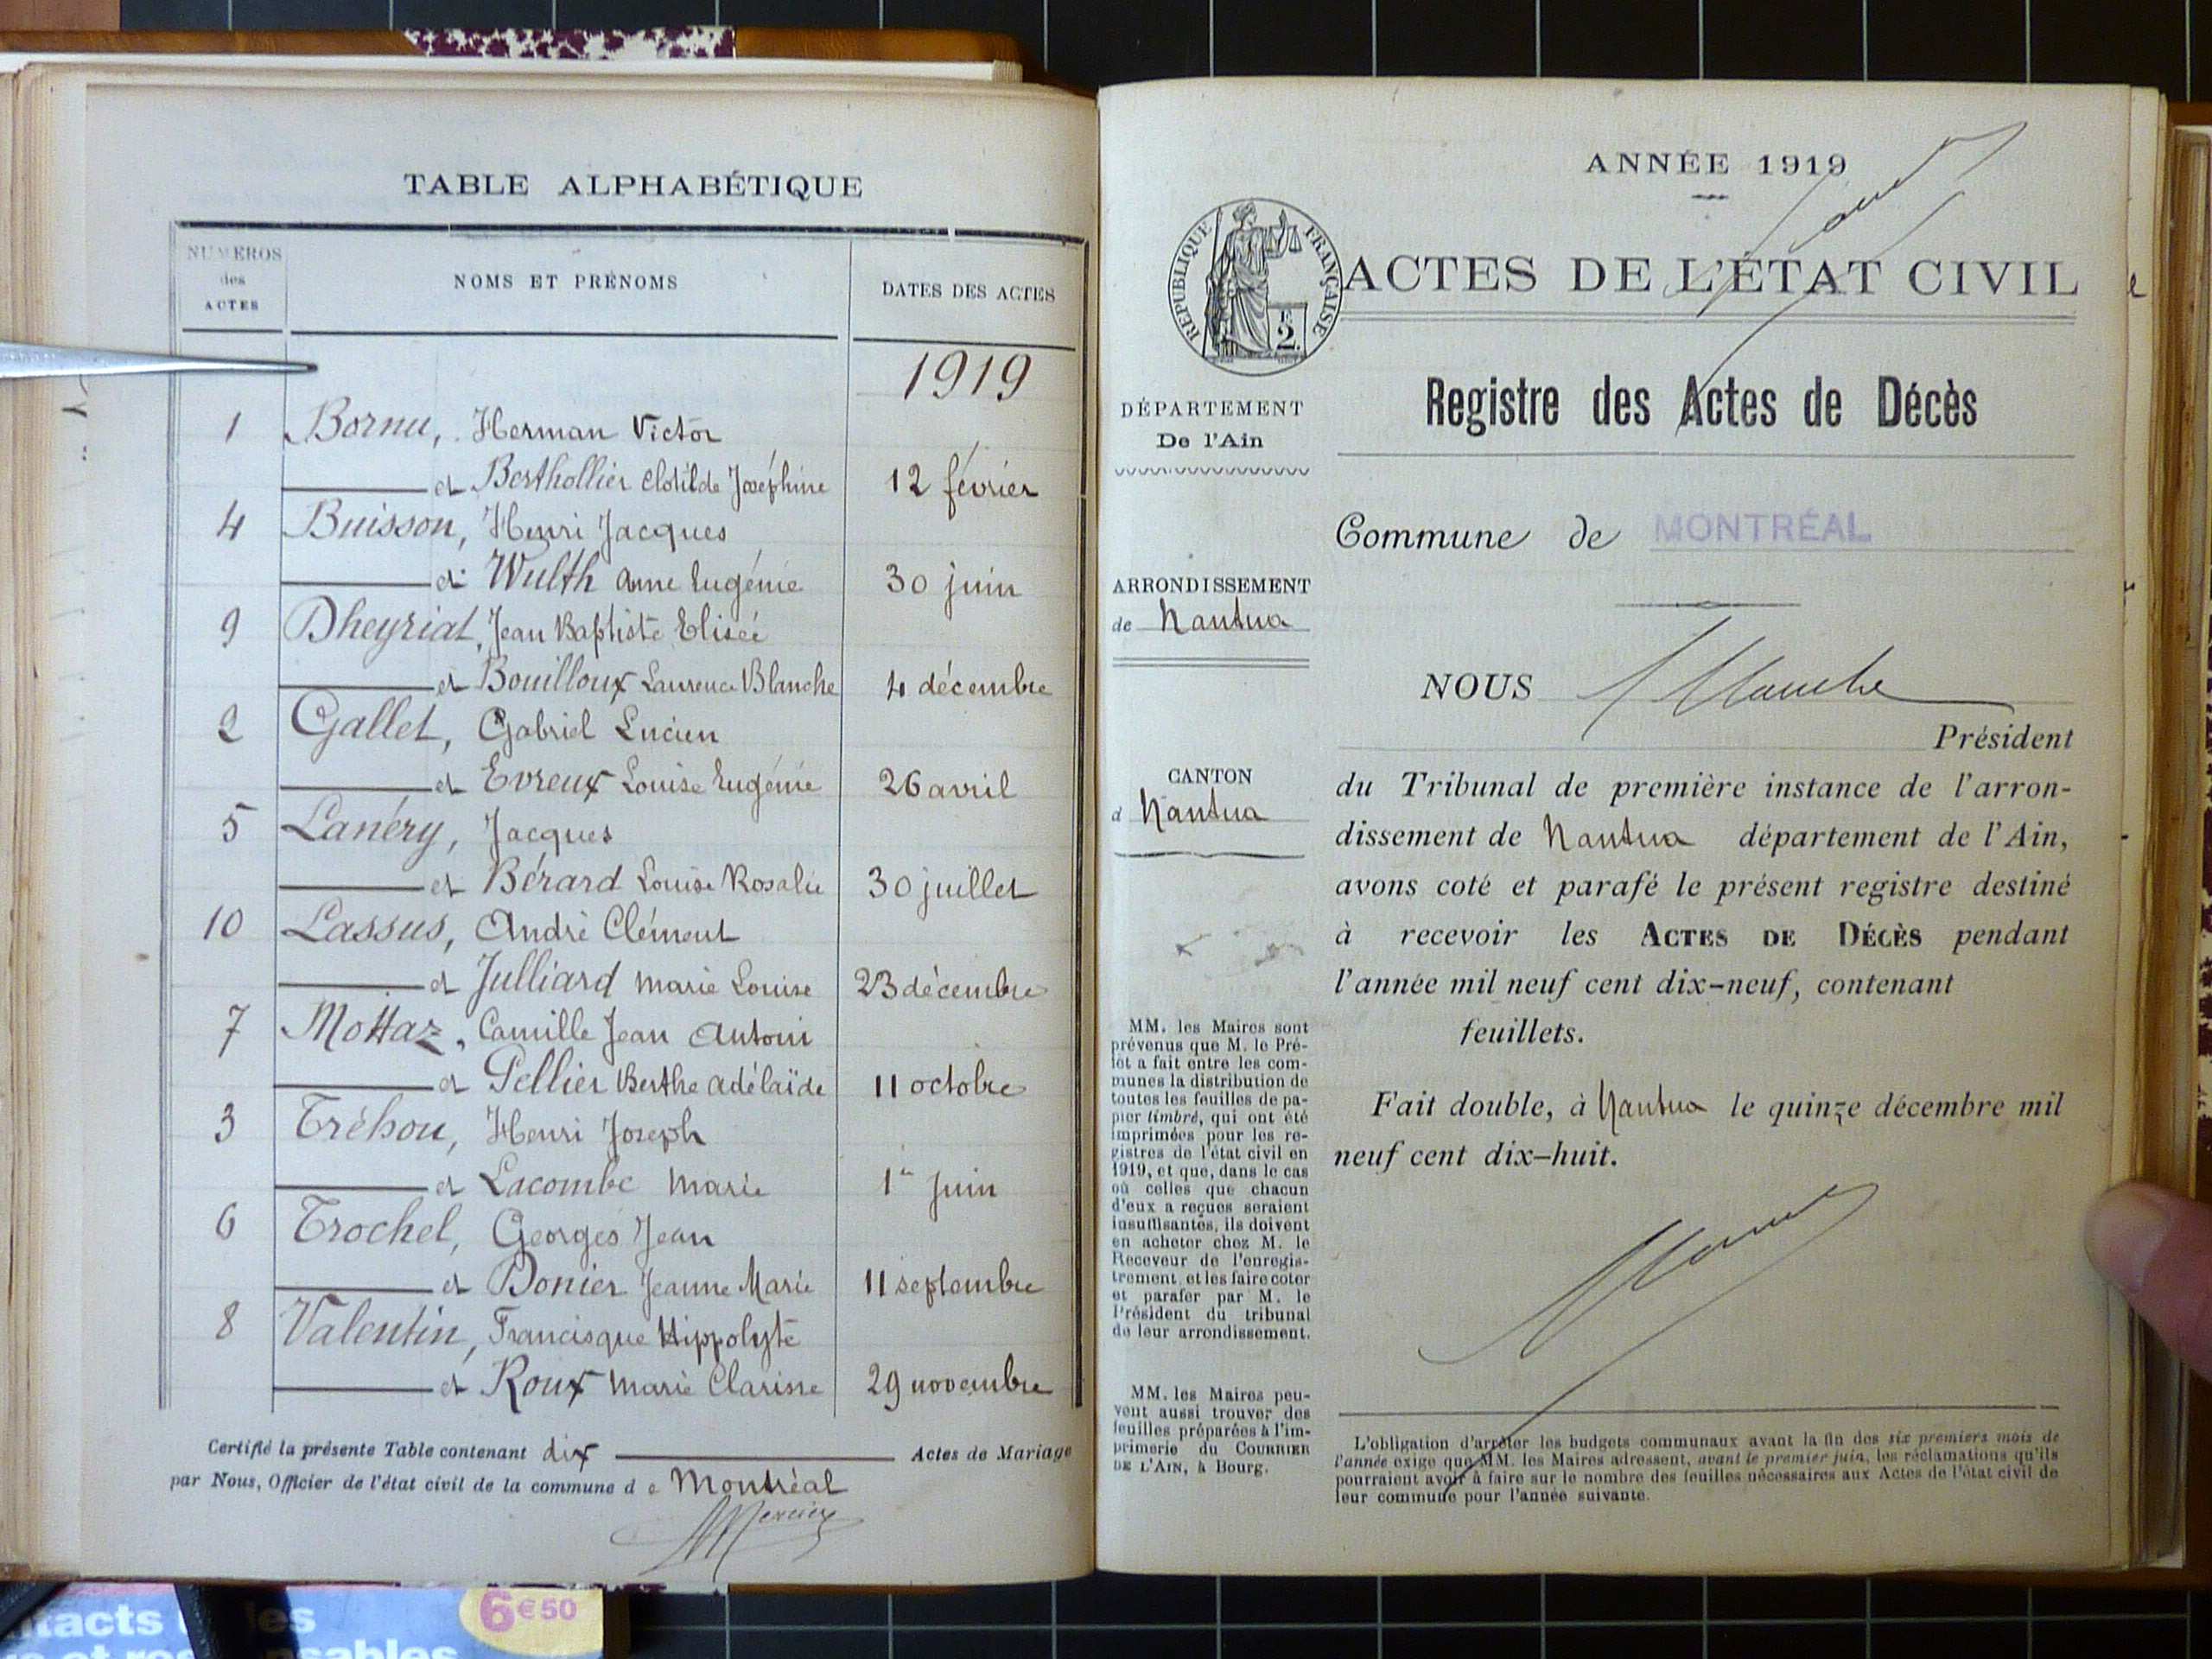 TABLE ALPHABÉTIQUE
NUMÉROS
des
ACTES
NOMS ET PRÉNOMS
DATES DES ACTES
1919
1 Bornu, Herman Victor
et Berthollier Clotilde Joséphine 12 février
4 Buisson, Henri Jacques
et Wulth Anne Eugénie 30 juin
9 Dheyriat, Jean Baptiste Elisée
et Bouilloux Laurence Blanche 4 décembre
2 Gallet, Gabriel Lucien
et Evreux Louise Eugénie 26 avril
5 Lanéry, Jacques
et Bérard Louise Rosalie 30 juillet
10 Lassus, André Clément
et Julliard Marie Louise 23 décembre
7 Mottaz, Camille Jean Antoni
et Pellier Berthe Adélaïde 11 octobre
3 Tréhou, Henri Joseph
et Lacombe Marie 1er Juin
6 Trochel, Georges Jean
et Donier Jeanne Marie 11 septembre
8 Valentin, Francisque Hippolyte
et Roux Marie Clarisse 29 novembre
Certifié la présente Table contenant dix Actes de Mariage
par Nous, Officier de l'état civil de la commune de Montréal
Mercier
ANNÉE 1919
RÉPUBLIQUE FRANÇAISE
2
ACTES DE L'ÉTAT CIVIL
Registre des Actes de Décès
DÉPARTEMENT
De l'Ain
Commune de MONTRÉAL
ARRONDISSEMENT
de Nantua
NOUS
Président
CANTON
d Nantua
du Tribunal de première instance de l'arron-
dissement de Nantua département de l'Ain,
avons coté et parafé le présent registre destiné
à recevoir les ACTES DE DÉCÈS pendant
l'année mil neuf cent dix-neuf, contenant
feuillets.
Fait double, à Nantua le quinze décembre mil
neuf cent dix-huit.
MM. les Maires sont
prévenus que M. le Pré-
fet a fait entre les com-
munes la distribution de
toutes les feuilles de pa-
pier timbré, qui ont été
imprimées pour les re-
gistres de l'état civil en
1919, et que, dans le cas
où celles que chacun
d'eux a reçues seraient
insuffisantes, ils doivent
en acheter chez M. le
Receveur de l'enregis-
trement et les faire coter
et parafer par M. le
Président du tribunal
de leur arrondissement.
MM. les Maires peu-
vent aussi trouver des
feuilles préparées à l'im-
primerie du COURRIER
DE L'AIN, à Bourg.
L'obligation d'arrêter les budgets communaux avant la fin des six premiers mois de
l'année exige que MM. les Maires adressent, avant le premier juin, les réclamations qu'ils
pourraient avoir à faire sur le nombre des feuilles nécessaires aux Actes de l'état civil de
leur commune pour l'année suivante.
6€50